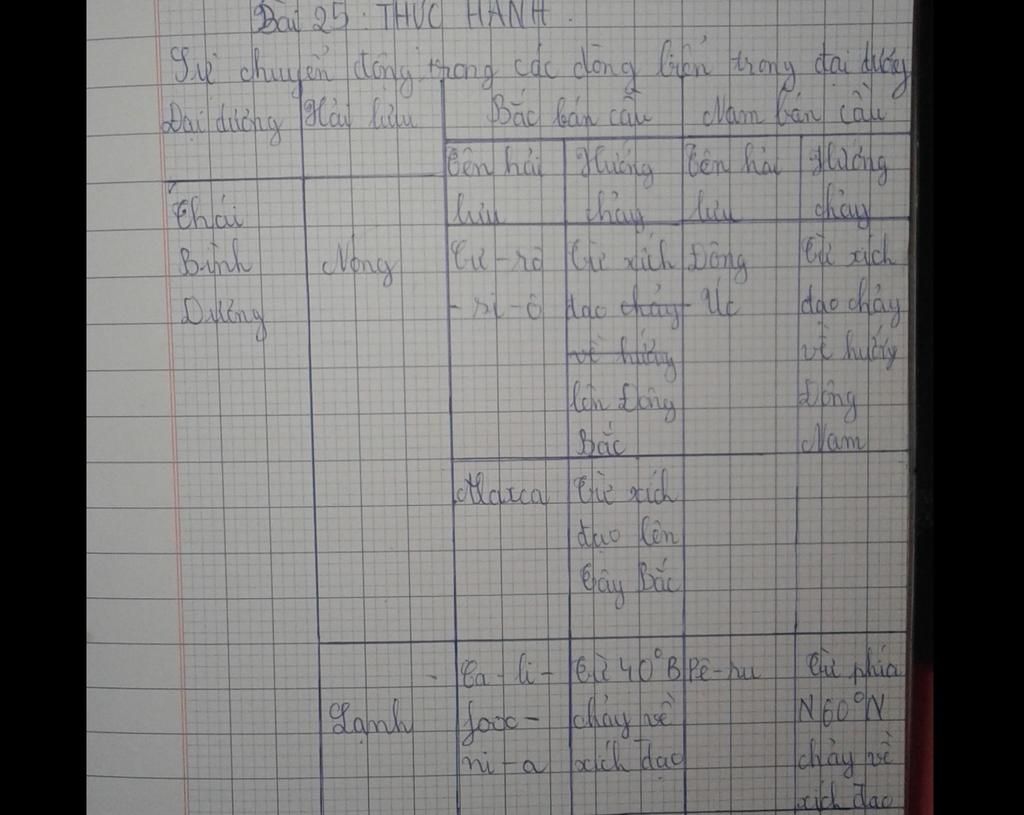 Bài 25. THỰC HÀNH.
Sự chuyển động trong các dòng biển trong đại dương
Đại dương Hải lưu Bắc bán cầu Nam bán cầu
Tên hải Hướng Tên hải Hướng
lưu chảy lưu chảy
Thái
Bình Nóng Cư-rô Từ xích Đông Từ xích
Dương - si-ô đạo chảy Úc đạo chảy
về hướng về hướng
lên Đông Đông
Bắc Nam
Từ xích
đạo lên
Tây Bắc
Ca-li- Từ 40°B Pê-ru Từ phía
Lạnh fooc- chảy về N60°N
ni-a xích đạo chảy về
xích đạo